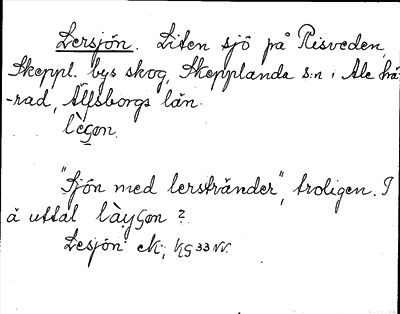 Lersjön. Liten sjö på Risveden,
Skeppl. bys skog, Skepplanda s:n i Ale hä-
-rad, Älfsborgs län.
lèʂon.
"Sjön med lerstränder", troligen. I
ä uttal làyʂon?
Lesjön ek; KG 33 NV.